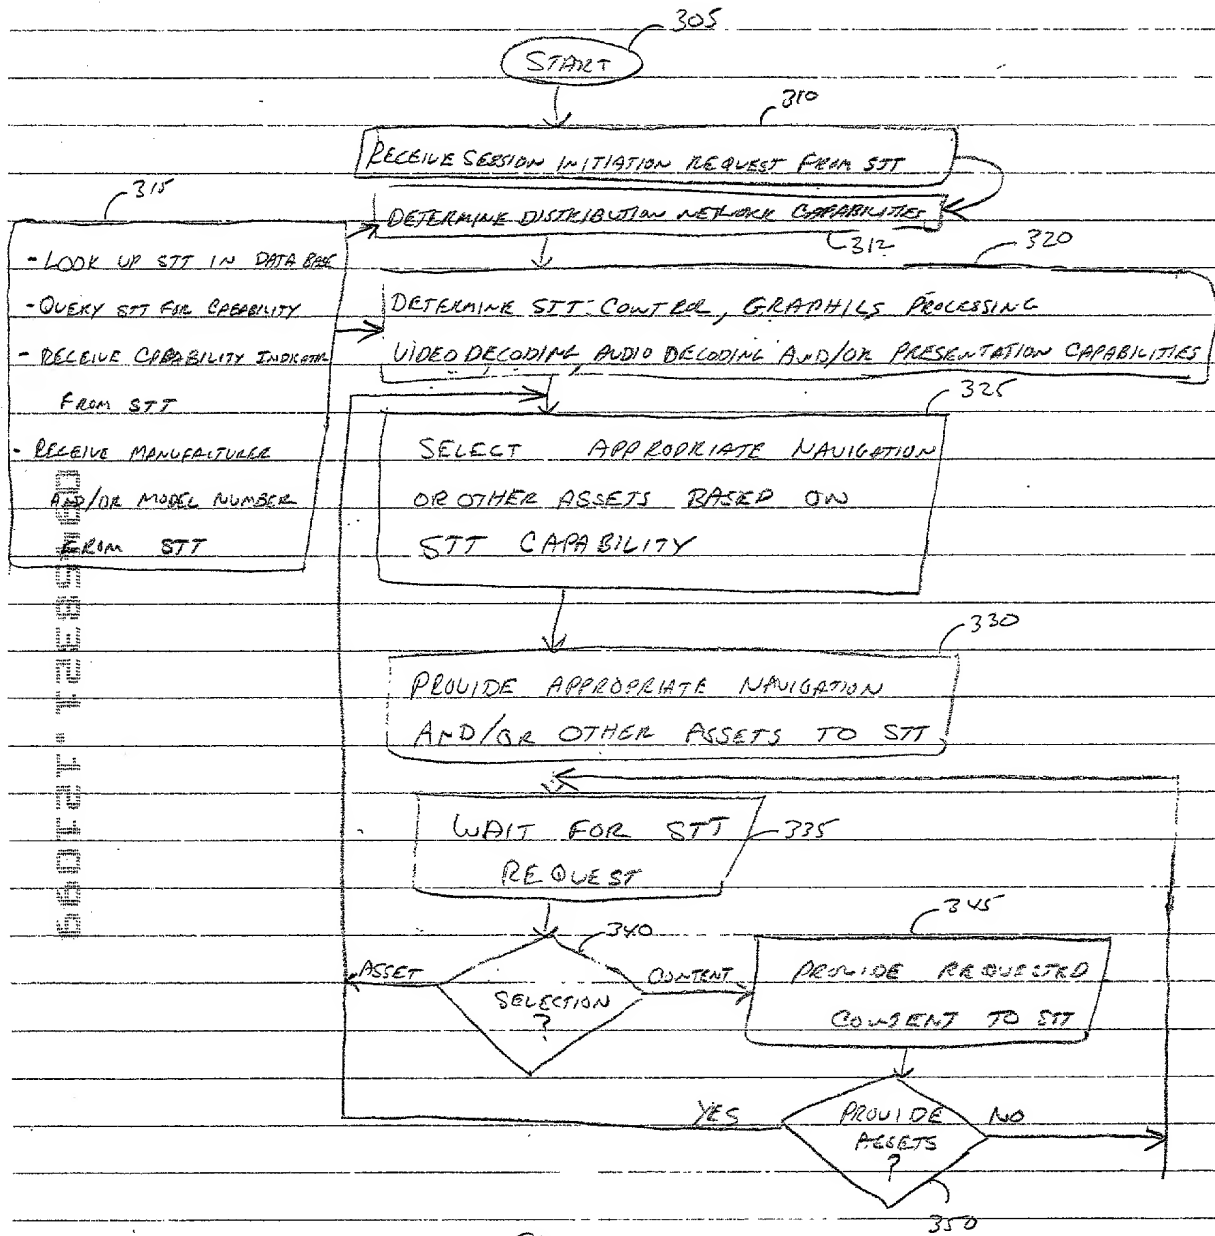 305
START
310
RECEIVE SESSION INITIATION REQUEST FROM STT
315
DETERMINE DISTRIBUTION NETWORK CAPABILITIES
312
320
- LOOK UP STT IN DATA BASE
- QUERY STT FOR CAPABILITY
- RECEIVE CAPABILITY INDICATOR
FROM STT
- RECEIVE MANUFACTURER
AND/OR MODEL NUMBER
FROM STT
DETERMINE STT CONTROL, GRAPHICS PROCESSING
VIDEO DECODING, AUDIO DECODING AND/OR PRESENTATION CAPABILITIES
325
SELECT APPROPRIATE NAVIGATION
OR OTHER ASSETS BASED ON
STT CAPABILITY
330
PROVIDE APPROPRIATE NAVIGATION
AND/OR OTHER ASSETS TO STT
WAIT FOR STT
REQUEST
335
340
345
ASSET
SELECTION
?
CONTENT
PROVIDE REQUESTED
CONTENT TO STT
YES
PROVIDE
ASSETS
?
NO
350